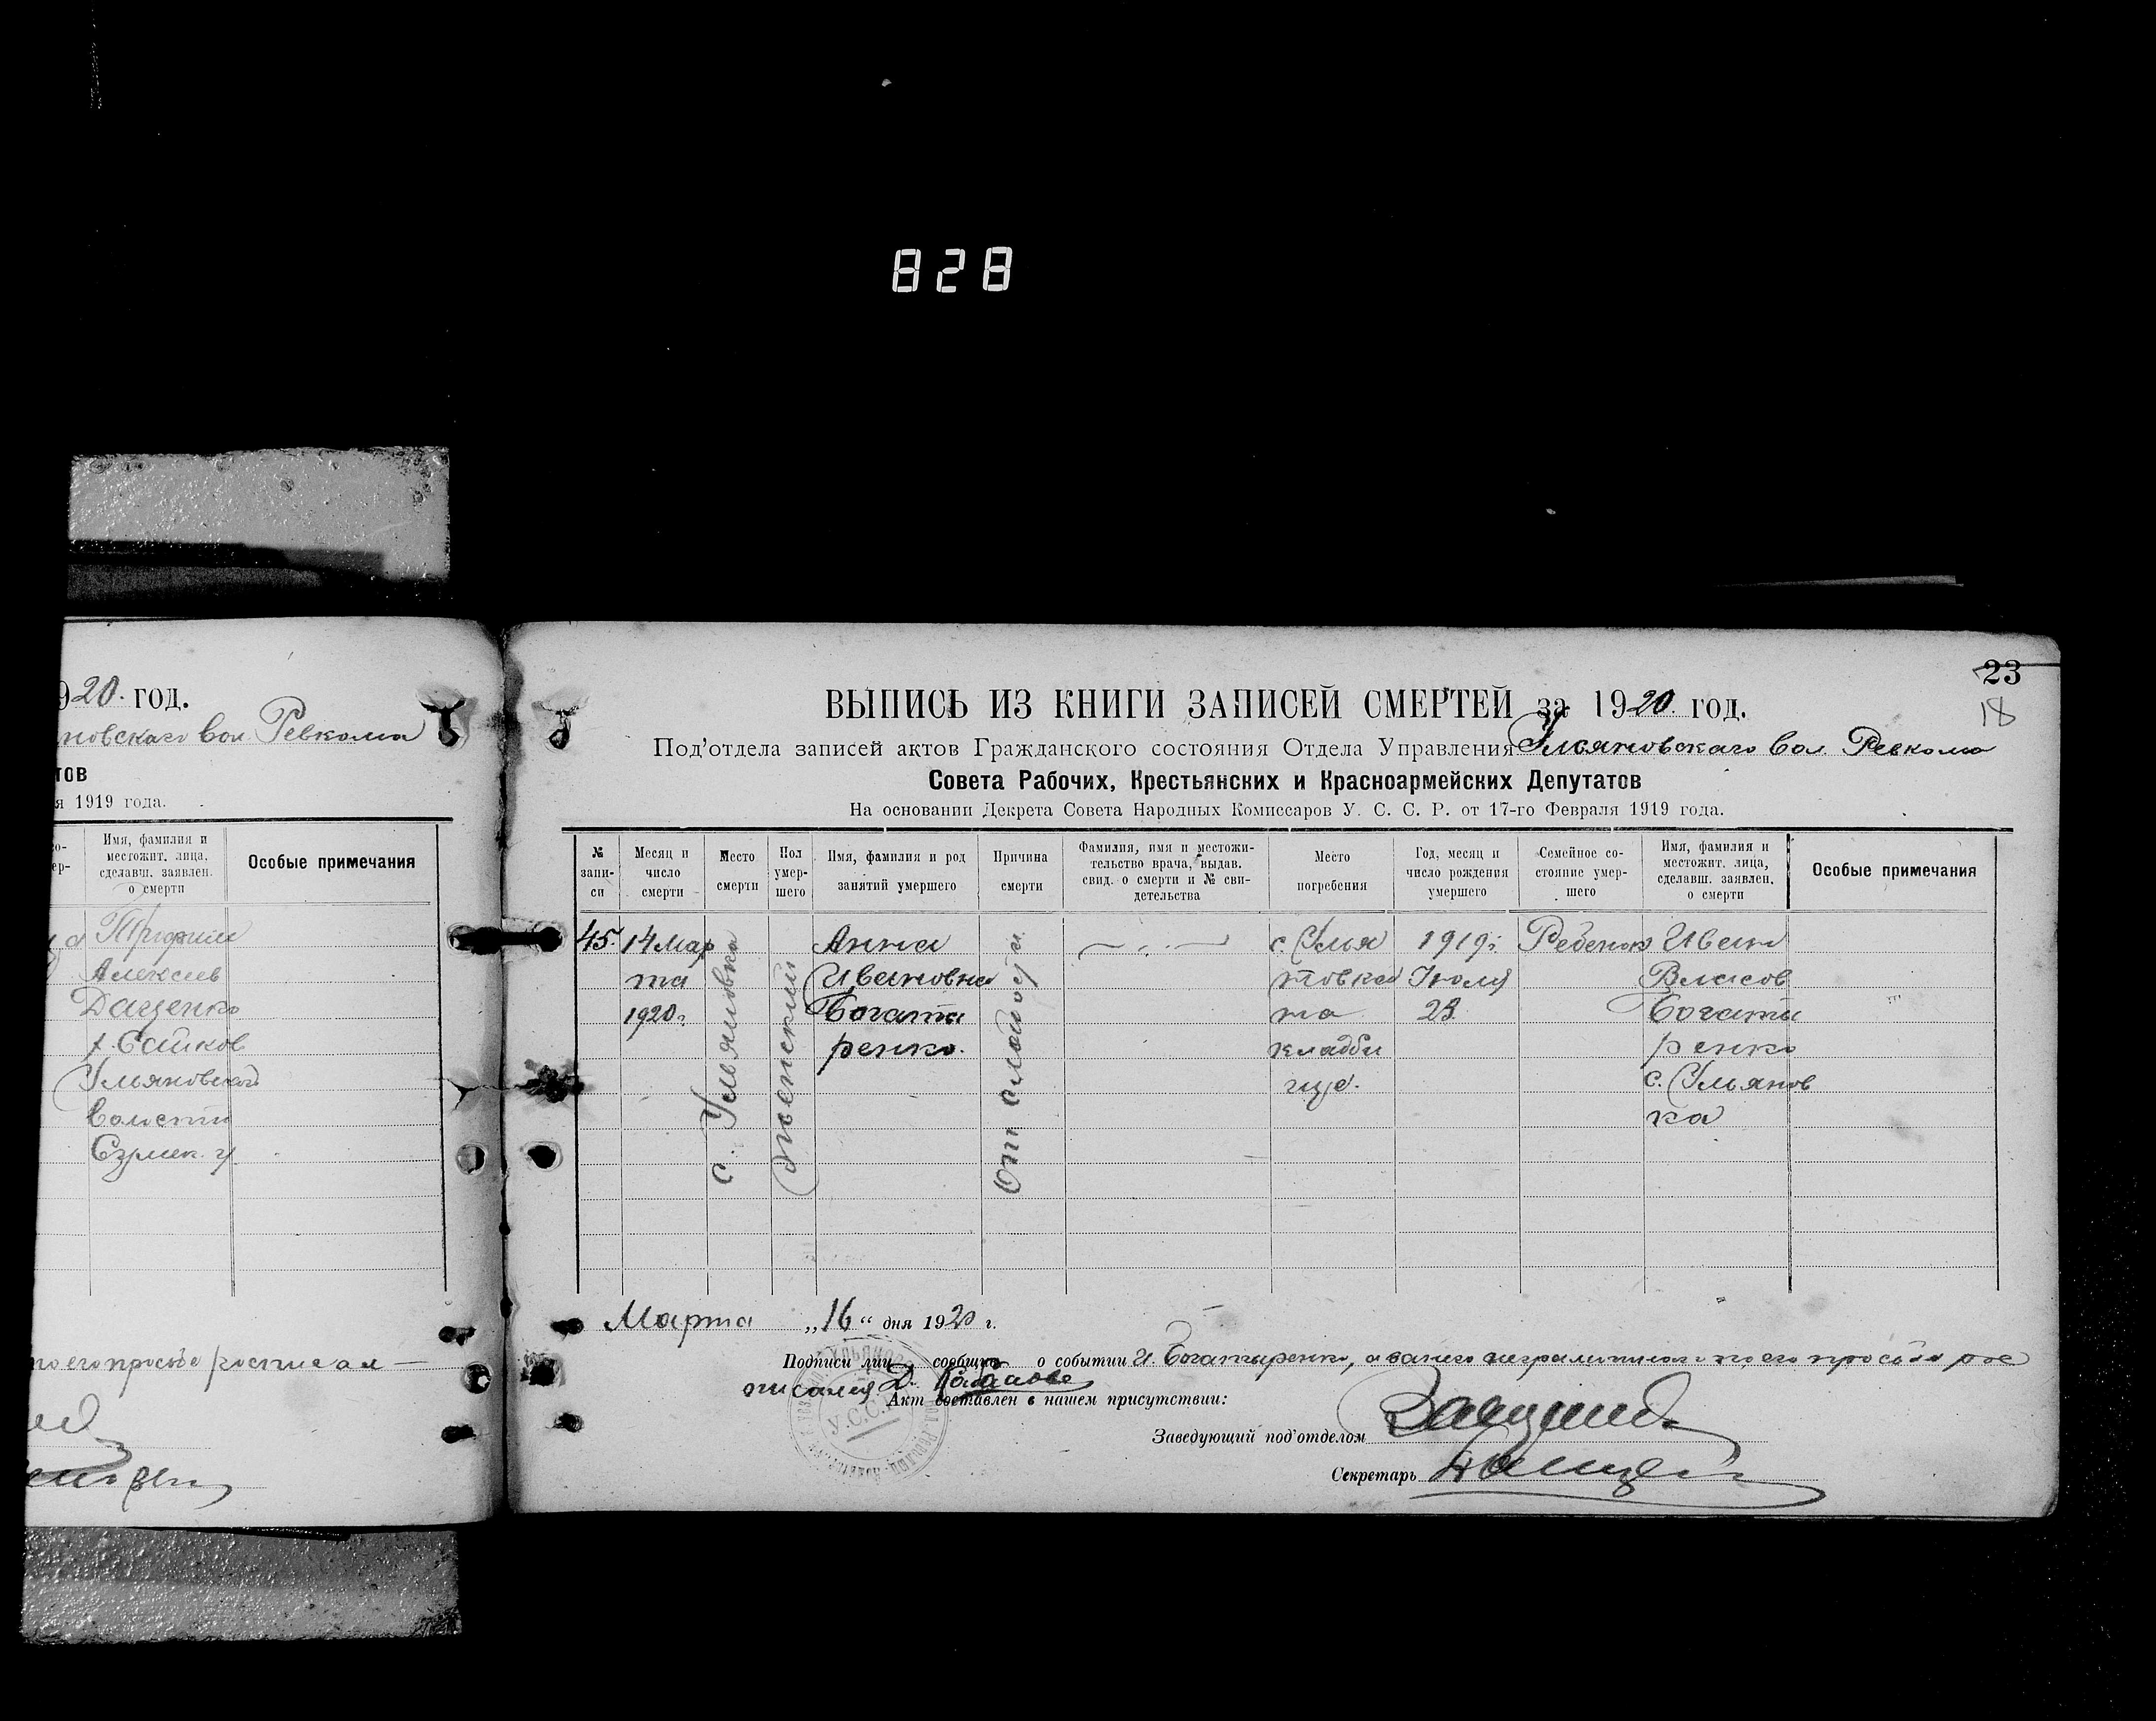 828
920. год.
новскаго Вол Ревкома
тов
я 1919 года.
Имя, фамилия и
местожит. лица,
сделавш. заявлен.
о смерти
Особые примечания
Алексеев
Даценко
Ульяновской
Волости
по его просьбе росписал —
23
18
ВЫПИСЬ ИЗ КНИГИ ЗАПИСЕЙ СМЕРТЕЙ за 1920 год.
Под'отдела записей актов Гражданского состояния Отдела Управления Ульяновскаго Вол Ревкома
Совета Рабочих, Крестьянских и Красноармейских Депутатов
На основании Декрета Совета Народных Комиссаров У. С. С. Р. от 17-го Февраля 1919 года.
№
запи-
си
Месяц и
число
смерти
Место
смерти
Пол
умер-
шего
Имя, фамилия и род
занятий умершего
Причина
смерти
Фамилия, имя и местожи-
тельство врача, выдав.
свид. о смерти и № сви-
детельства
Место
погребения
Год, месяц и
число рождения
умершего
Семейное со-
стояние умер-
шего
Имя, фамилия и
местожит. лица,
сделавш. заявлен.
о смерти
Особые примечания
45.
14 Мар
та
1920 г.
с. Ульяновка
Женский
Анна
Ивановна
Богати
ренко.
От
с. Улья
новка
на
кладби
ще.
1919 г.
Июля
23.
Ребенок
Иван
Власов
Богати
ренко
с. Ульянов
ка
Марта „16“ дня 1920 г.
Подписи лиц, сообщ. о событии И. Богатыренко, а за него неграмотного по его просьбе рос
писался Д.
Акт составлен в нашем присутствии:
У.С.С.Р.
Заведующий под'отделом
Секретарь